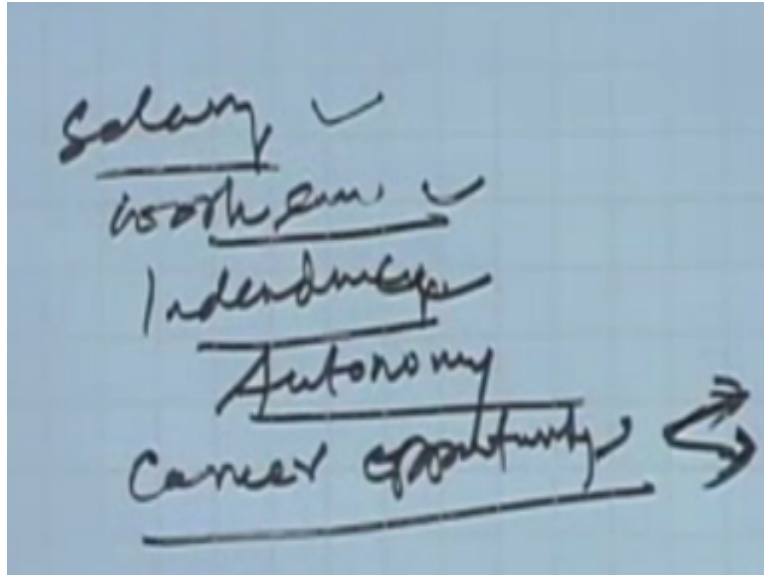 Salary ✓
Work env. ✓
Indendency
Autonomy
Career opportunity